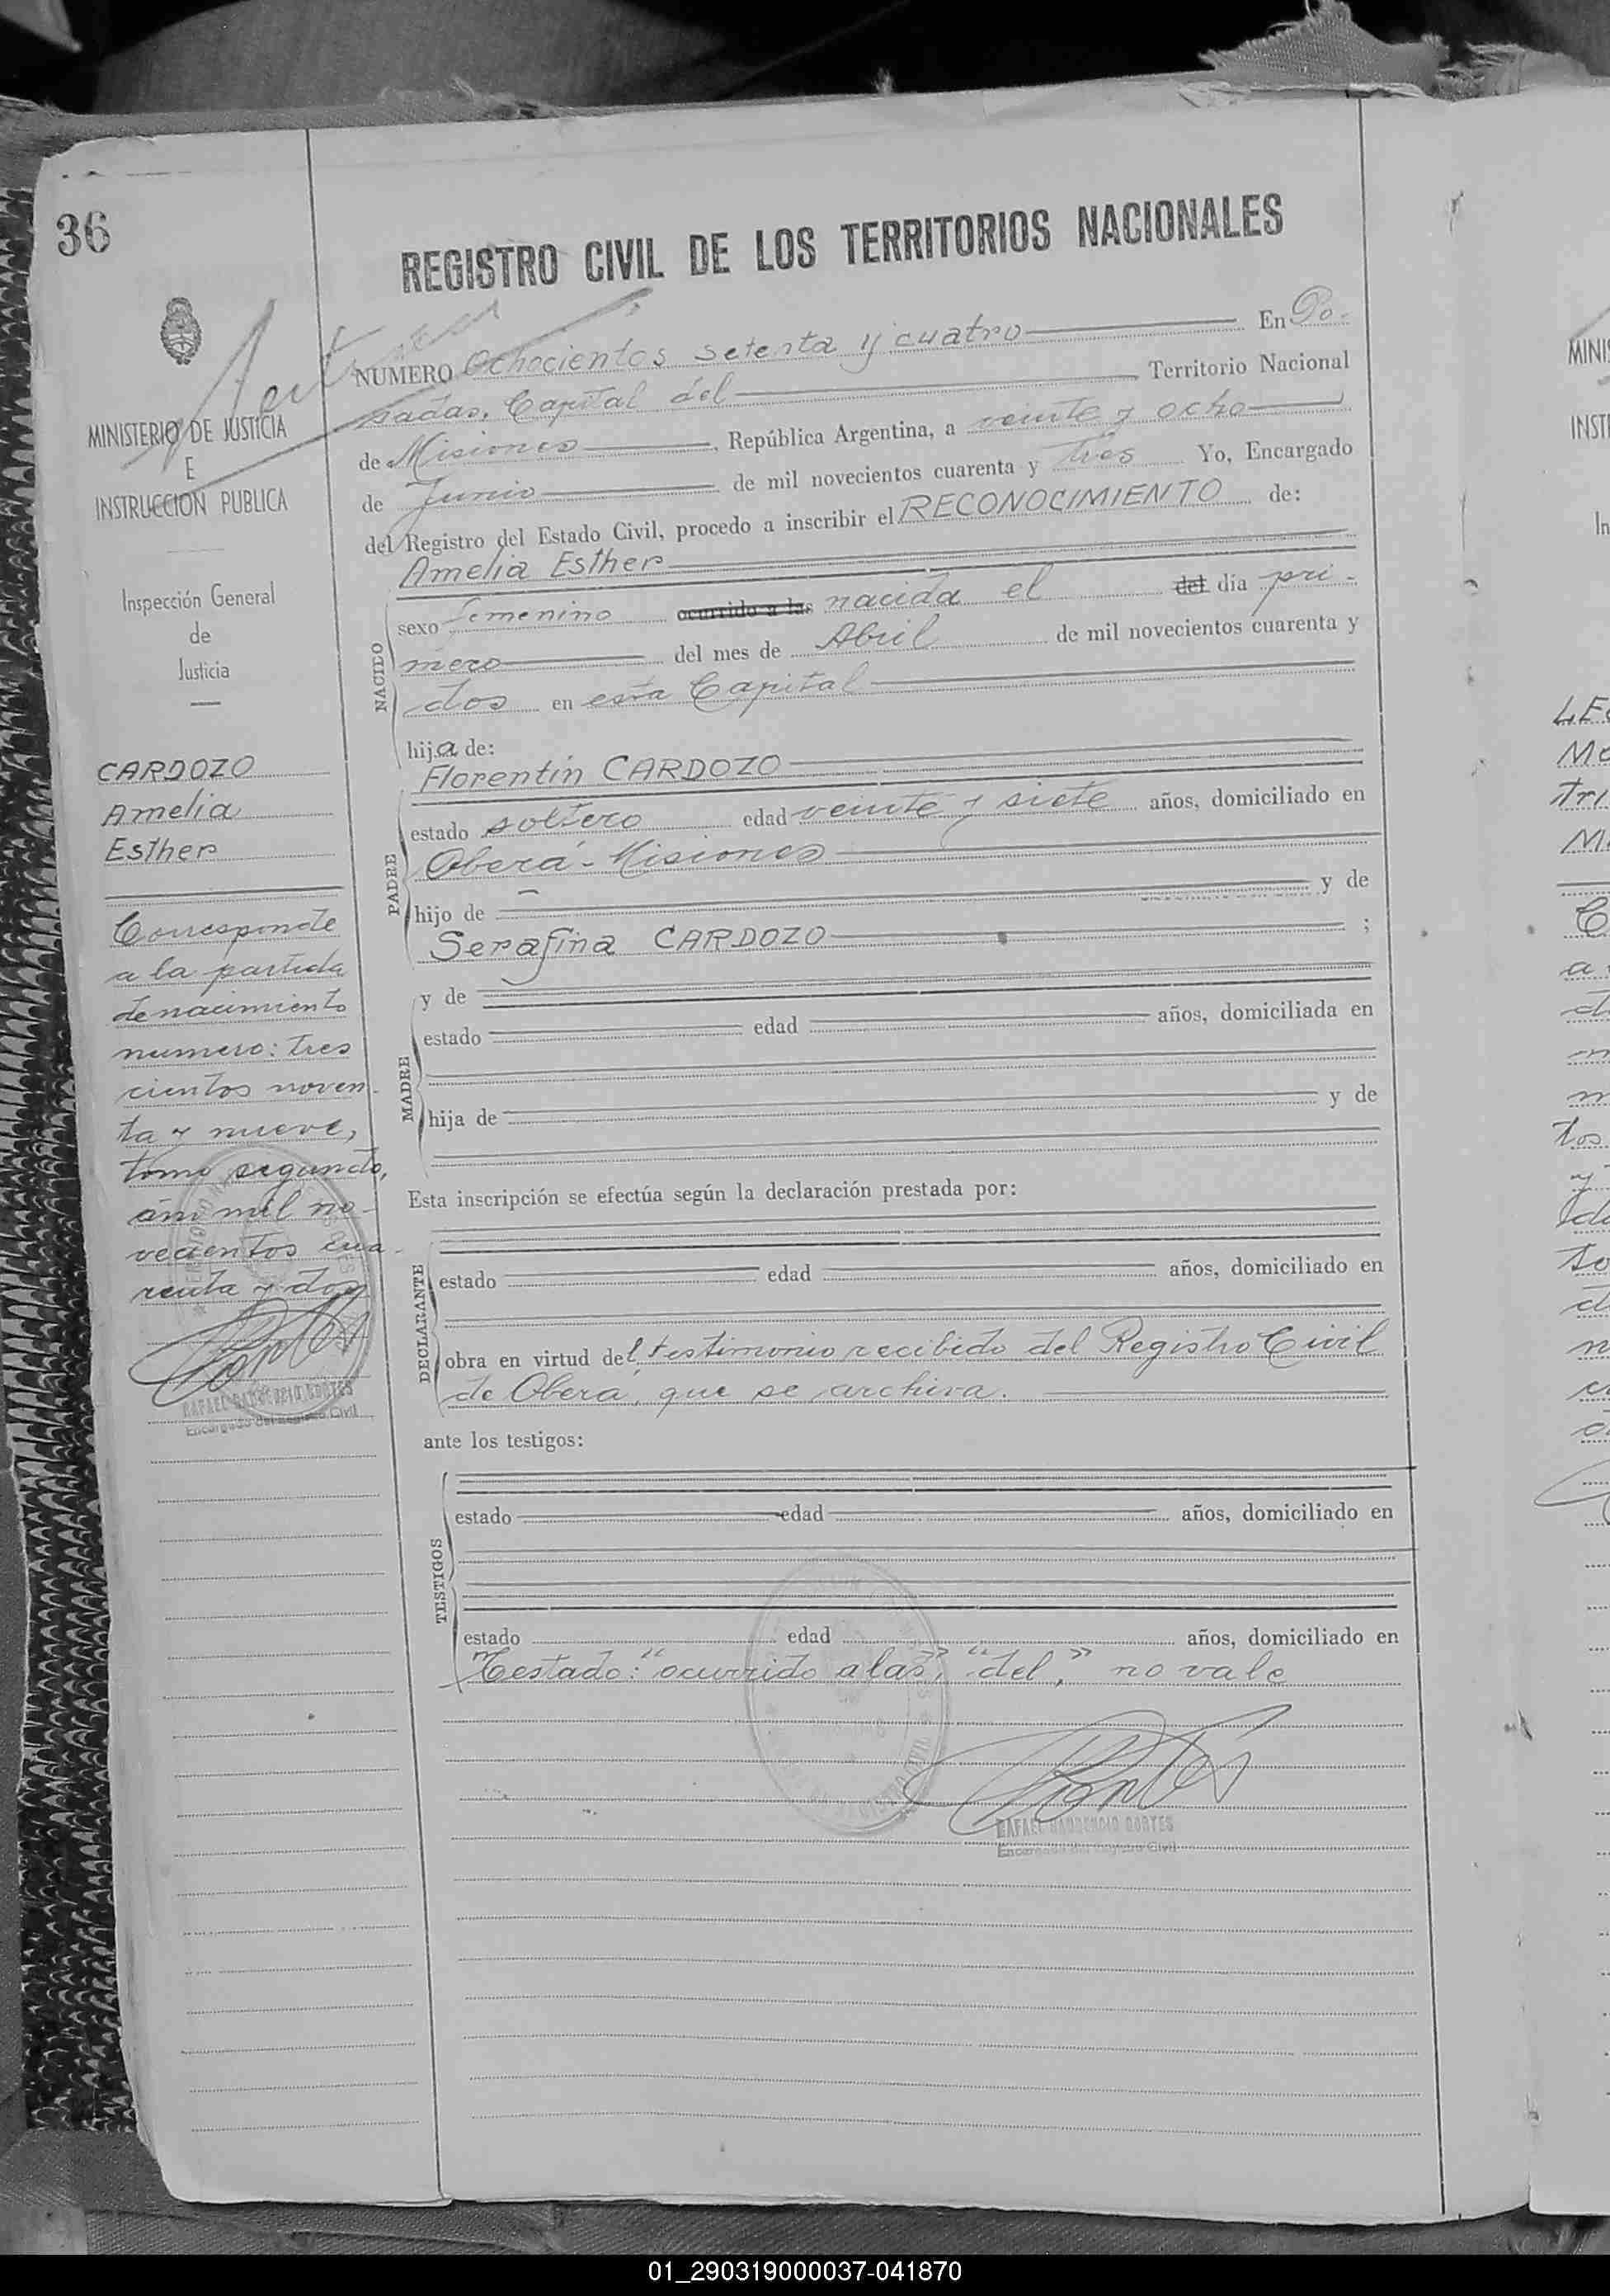 36
REGISTRO CIVIL DE LOS TERRITORIOS NACIONALES
NUMERO Ochocientos setenta y cuatro En Po-
sadas, Capital del Territorio Nacional
de Misiones, República Argentina, a veinte y ocho
de Junio de mil novecientos cuarenta y tres Yo, Encargado
del Registro del Estado Civil, procedo a inscribir el RECONOCIMIENTO de:
Amelia Esther
NACIDO
sexo femenino ocurrido a las nacida el del día pri-
mero del mes de Abril de mil novecientos cuarenta y
dos en esta Capital
hija de:
PADRE
Florentín CARDOZO
estado soltero edad veinte y siete años, domiciliado en
Oberá - Misiones
hijo de y de
Serafina CARDOZO ;
MADRE
y de
estado edad años, domiciliada en
hija de y de
Esta inscripción se efectúa según la declaración prestada por:
DECLARANTE
estado edad años, domiciliado en
obra en virtud del testimonio recibido del Registro Civil
de Oberá, que se archiva.
ante los testigos:
TESTIGOS
estado edad años, domiciliado en
estado edad años, domiciliado en
Testado: "ocurrido a las", "del," no vale
Cortés
RAFAEL CORTES
Encargado del Registro Civil
MINISTERIO DE JUSTICIA
E
INSTRUCCION PUBLICA
Inspección General
de
Justicia
CARDOZO
Amelia
Esther
Corresponde
a la partida
de nacimiento
numero: tres
cientos noven-
ta y nueve,
tomo segundo,
año mil no-
vecientos cua-
renta y dos
Cortés
RAFAEL CORTES
Encargado del Registro Civil
MINIS
INST
In
LE
Mo
tri
M
01_290319000037-041870